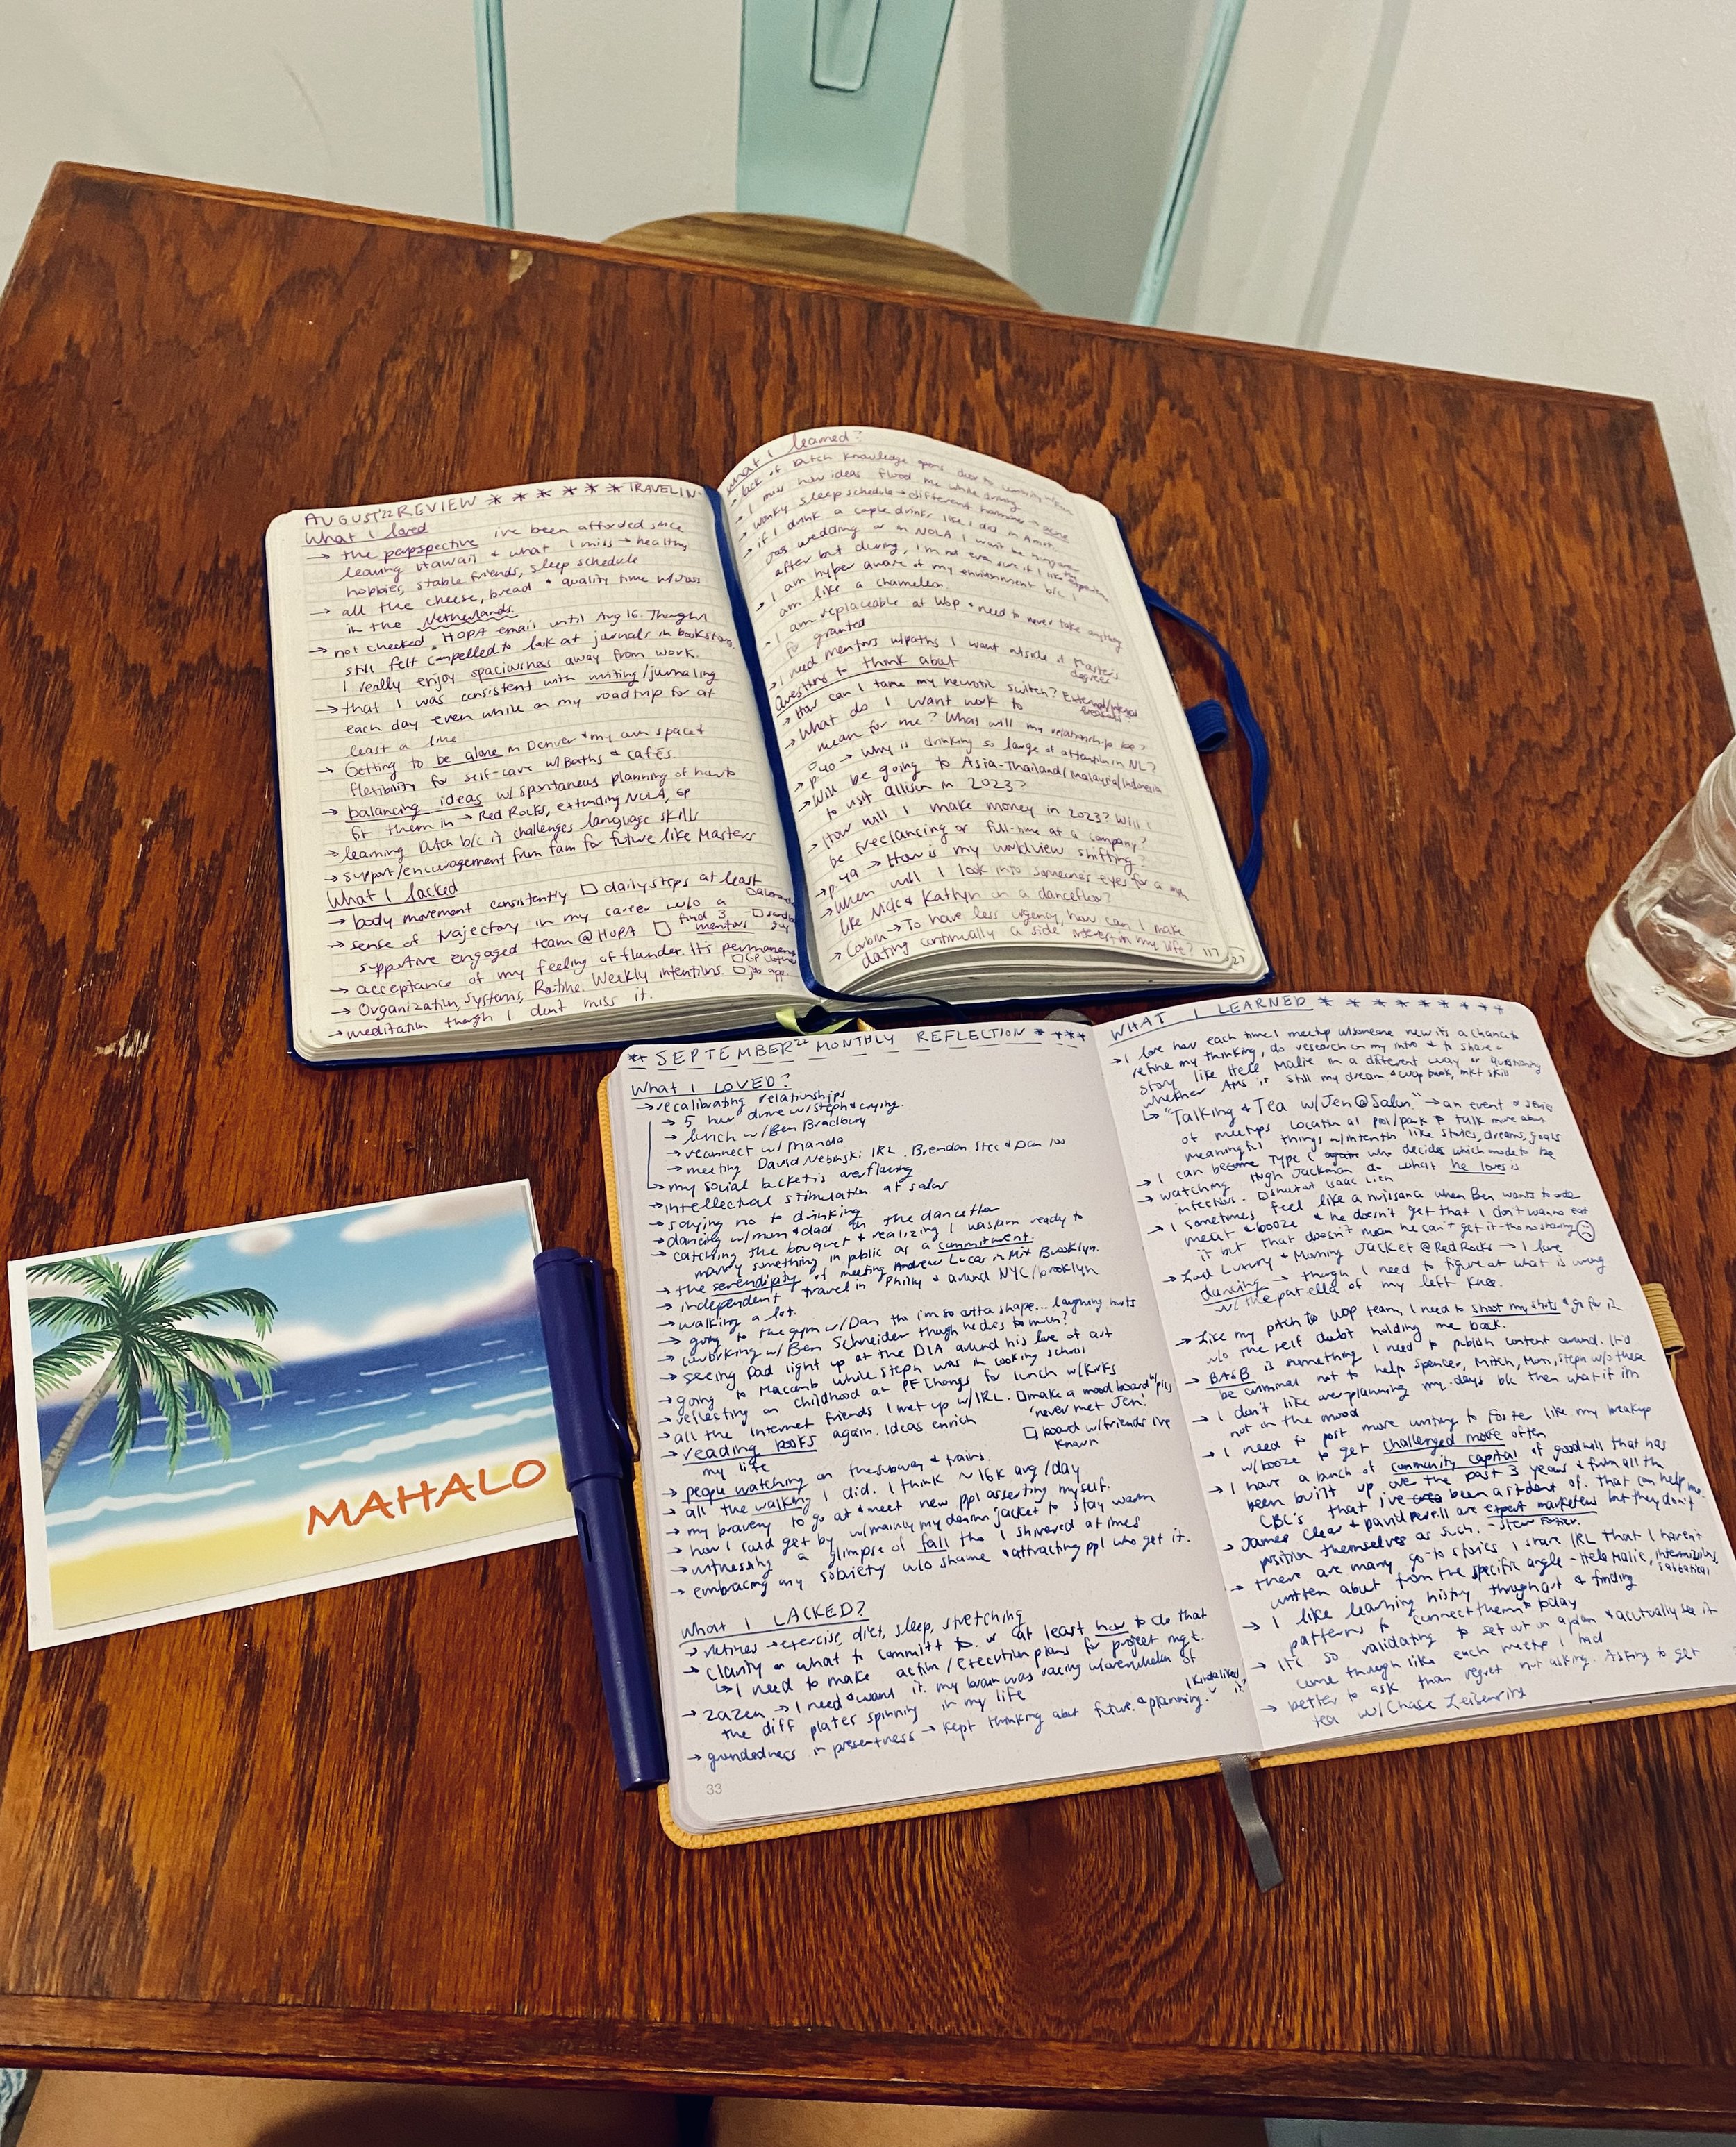 AUGUST'22 REVIEW * * * * * * TRAVELIN'
What I loved
→ the perpspective i've been afforded since
leaving Hawaii & what I miss → healthy
hobbies, stable friends, sleep schedule
→ all the cheese, bread & quality time w/
in the Netherlands
→ not checked HOPA email until Aug 16. Though I
still felt compelled to look at journals in bookstores
I really enjoy spaciousness away from work.
→ that I was consistent with writing/journaling
each day even while on my roadtrip for at
least a line
→ Getting to be alone in Denver & my own space &
flexibility for self-care w/Baths & cafés.
→ balancing ideas w/ spontaneous planning of how to
fit them in → Red Rocks, extending NOLA, GP
→ learning Dutch b/c it challenges language skills
→ support/encouragement from fam for future like Masters
What I lacked
→ body movement consistently □ daily steps at least
→ sense of trajectory in my career w/o a
supportive engaged team @HOPA □ find 3 mentors
→ acceptance of my feeling of flounder. It's permanent
→ Organization, systems, Routine. Weekly intentions. □ job app.
→ meditation though I don't miss it.
What I learned?
lack of Dutch knowledge opens door to
I miss how ideas flood me while driving
wonky sleep schedule → different hormone →
→ if I drink a couple drinks like I did in
Jas wedding or in NOLA I won't be hungover
after but during, I'm not even sure if I like the
I am hyper aware of my environment b/c I
am like a chameleon
I am replaceable at WOP & need to never take anything
for granted
→ I need mentors w/paths I want outside of Masters
degrees
Questions to think about
→ How can I tame my neurotic switch? External/internal
→ What do I want work to
mean for me? What will my relationship be?
→ p.40 → Why is drinking so large of attention in NL?
→ Will I be going to Asia-Thailand/Malaysia/Indonesia
to visit Allison in 2023?
→ How will I make money in 2023? Will I
be freelancing or full-time at a company?
→ p.49 → How is my worldview shifting?
→ When will I look into someone's eyes for a
like Nick & Kathlyn on a dancefloor?
→ Corbin → To have less urgency, how can I make
dating continually a side interest in my life? 117
** SEPTEMBER'22 MONTHLY REFLECTION * ***
What I LOVED?
→ recalibrating relationships
→ 5 hour drive w/steph & crying.
→ lunch w/Ben Bradbury
→ reconnect w/ Manda
→ meeting David Nebinski IRL. Brendan Stec & Dan
→ my social bucket is overflowing
→ intellectual stimulation at salon
→ saying no to drinking
→ dancing w/mom & dad on the dancefloor
→ catching the bouquet & realizing I was/am ready to
marry something in public as a commitment.
→ the serendipity of meeting Andrew Lucas in Brooklyn.
→ independent travel in Philly & around NYC/brooklyn
→ walking a lot.
→ going to the gym w/Dan tho i'm so outta shape... laughing hurts
→ coworking w/ Ben Schneider though he dies too much?
→ seeing Dad light up at the DIA around his love of art
→ going to Macomb while Steph was in cooking school
→ reflecting on childhood at PF Changs for lunch w/Kirks
→ all the Internet friends I met up w/IRL. □ make a mood board w/pics
'never met Jen'
→ reading books again. Ideas enrich □ board w/friends i've
my life known
→ people watching on the subway & trains.
→ all the walking I did. I think ~16K avg/day
→ my bravery to go at & meet new ppl asserting myself.
→ how I could get by w/mainly my denim jacket to stay warm
→ witnessing a glimpse of fall tho I shivered at times
→ embracing my sobriety w/o shame & attracting ppl who get it.
What I LACKED?
→ routines → exercise, diet, sleep, stretching
→ clarity on what to commit to. or at least how to do that
↳ I need to make action/execution plans for project mgt.
→ zazen → I need & want it. my brain was racing w/overwhelm of
the diff plates spinning in my life
→ groundedness in presentness → kept thinking about future & planning. (kinda liked it)
33
WHAT I LEARNED * * * * * * * * *
→ I love how each time I meetup w/someone new it's a chance to
refine my thinking, do research on my intro & to share a
story like Hele Malie in a different way or questioning
whether AMS is still my dream & WOP book, mkt skill
↳ "Talking & Tea w/Jen@Salon" → an event or series
of meetups located at pool/park to talk more about
meaningful things w/intention like stories, dreams, goals
→ I can become Type C again who decides which mode to be
→ watching Hugh Jackman do what he loves is
infectious. Donut at Isaac
→ I sometimes feel like a nuissance when Ben wants to order
meat & booze & he doesn't get that I don't wanna eat
it but that doesn't mean he can't get it-tho no sharing ☹
→ Lord Luxury & Morning Jacket @RedRocks → I love
dancing → though I need to figure at what is wrong
w/ the patella of my left knee.
→ Like my pitch to WOP team, I need to shoot my shots & go for it
w/o the self doubt holding me back.
→ BASB is something I need to publish content around. It'd
be criminal not to help Spencer, Mitch, Mom, Steph w/o these
→ I don't like over-planning my days b/c then what if i'm
not in the mood
→ I need to post more writing to Foster like my breakup
w/booze to get challenged more often
→ I have a bunch of community capital of goodwill that has
been built up over the past 3 years & from all the
CBC's that i've been a student of. that can help me.
→ James Clear & David Perell are expert marketers but they don't
position themselves as such. -
→ there are many go-to stories I share IRL that I haven't
written about from the specific angle - Hele Malie, internship, sabbatical
→ I like learning history through art & finding
patterns to connect them to today
→ It's so validating to set out on a plan & acutually see it
come through like each meetup I had
→ better to ask than regret not asking. Asking to get
tea w/Chase
MAHALO